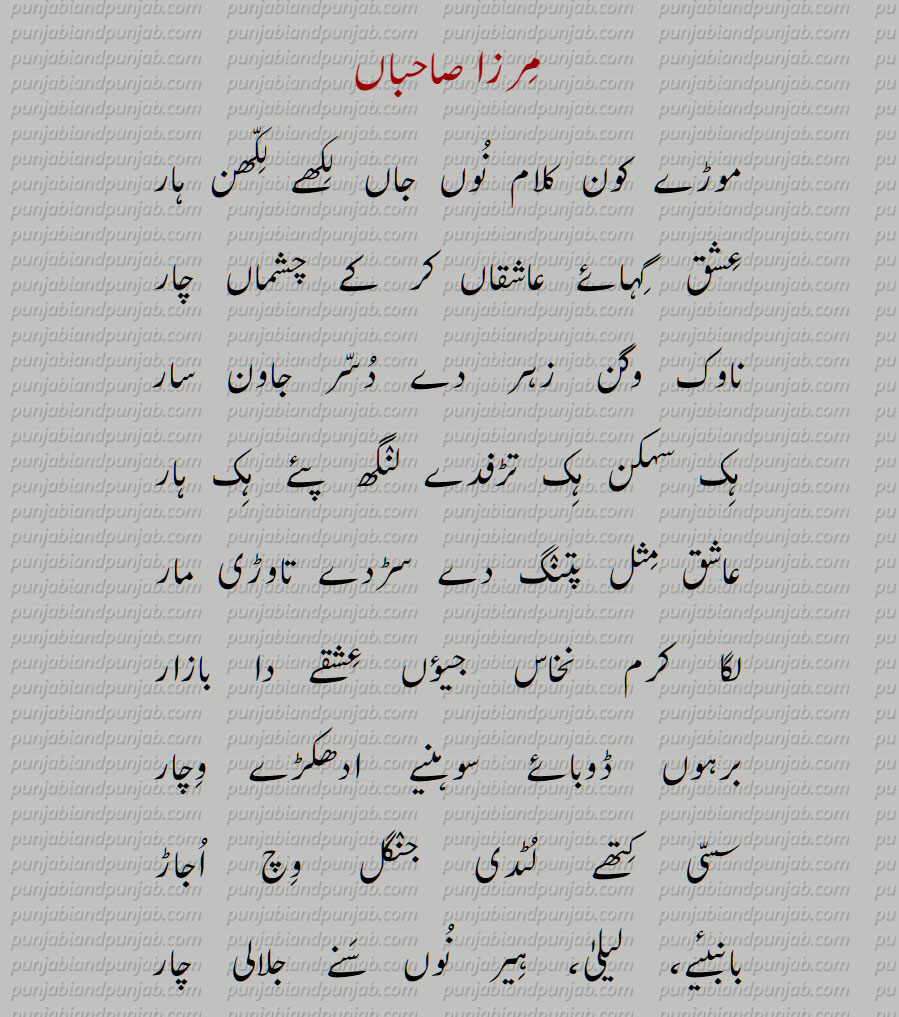 مِرزا صاحباں
موڑے کون کلام نُوں جاں لِکھے لِکّھن ہار
عِشق گِہائے عاشقاں کر کے چشماں چار
ناوک وگن زہر دے دُسّر جاون سار
ہِک سہکن ہِک تڑفدے لنگھ پئے ہِک ہار
عاشق مِثل پتنگ دے سڑدے تاوڑی مار
لگا کرم نخاس جیوں عِشقے دا بازار
برہوں ڈوبائے سوہنیے ادھکڑے وِچار
سسّی کِتھے لُڈدی جنگل وِچ اُجاڑ
بانبیئے، لیلیٰ، ہِیر نُوں سَنے جلالی چار